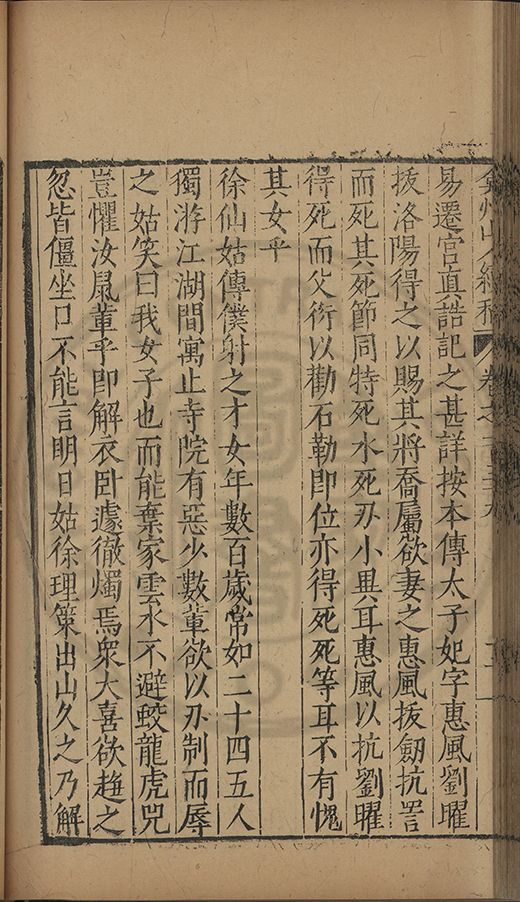 弇州山人續稿 卷之一百五十九
易遷宮真誥記之甚詳按本傳太子妃字惠風劉曜
拔洛陽得之以賜其將喬屬欲妻之惠風拔劒抗詈
而死其死節同特死水死刃小異耳惠風以抗劉曜
得死而父衍以勸石勒即位亦得死死等耳不有愧
其女乎
徐仙姑傳僕射之才女年數百歲常如二十四五人
獨游江湖間寓止寺院有惡少數輩欲以刃制而辱
之姑笑曰我女子也而能棄家雲水不避蛟龍虎兕
豈懼汝鼠輩乎即解衣卧遽徹燭焉衆大喜欲趍之
忽皆僵坐口不能言明日姑徐理策出山久之乃解